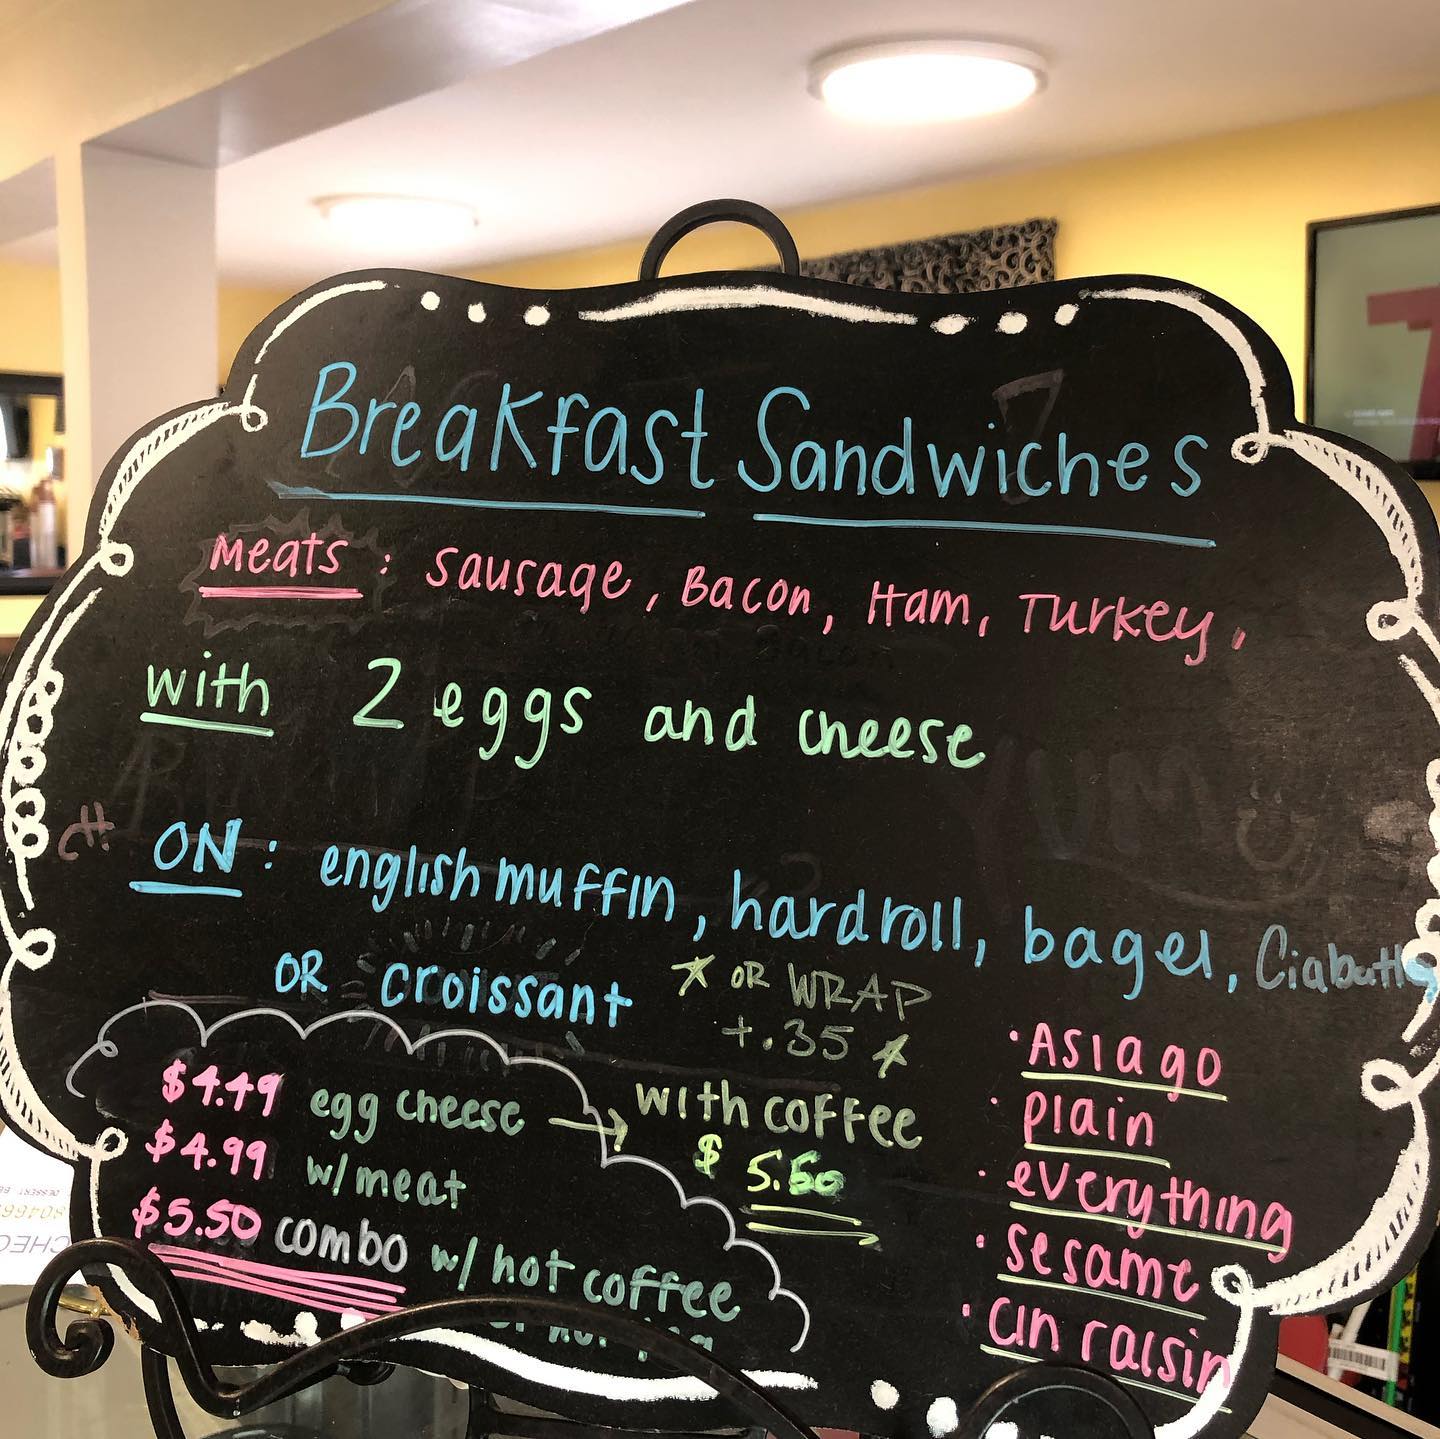 Breakfast Sandwiches
Meats: Sausage, Bacon, Ham, Turkey,
with 2 eggs and cheese
ON: english muffin, hard roll, bagel, Ciabatta
OR croissant
★ OR WRAP
+.35 ★
$4.49 egg cheese → with coffee
$ 5.50
$4.99 w/meat
$5.50 combo w/ hot coffee
or hot tea
· Asiago
· plain
· everything
· sesame
· cin raisin
YUM